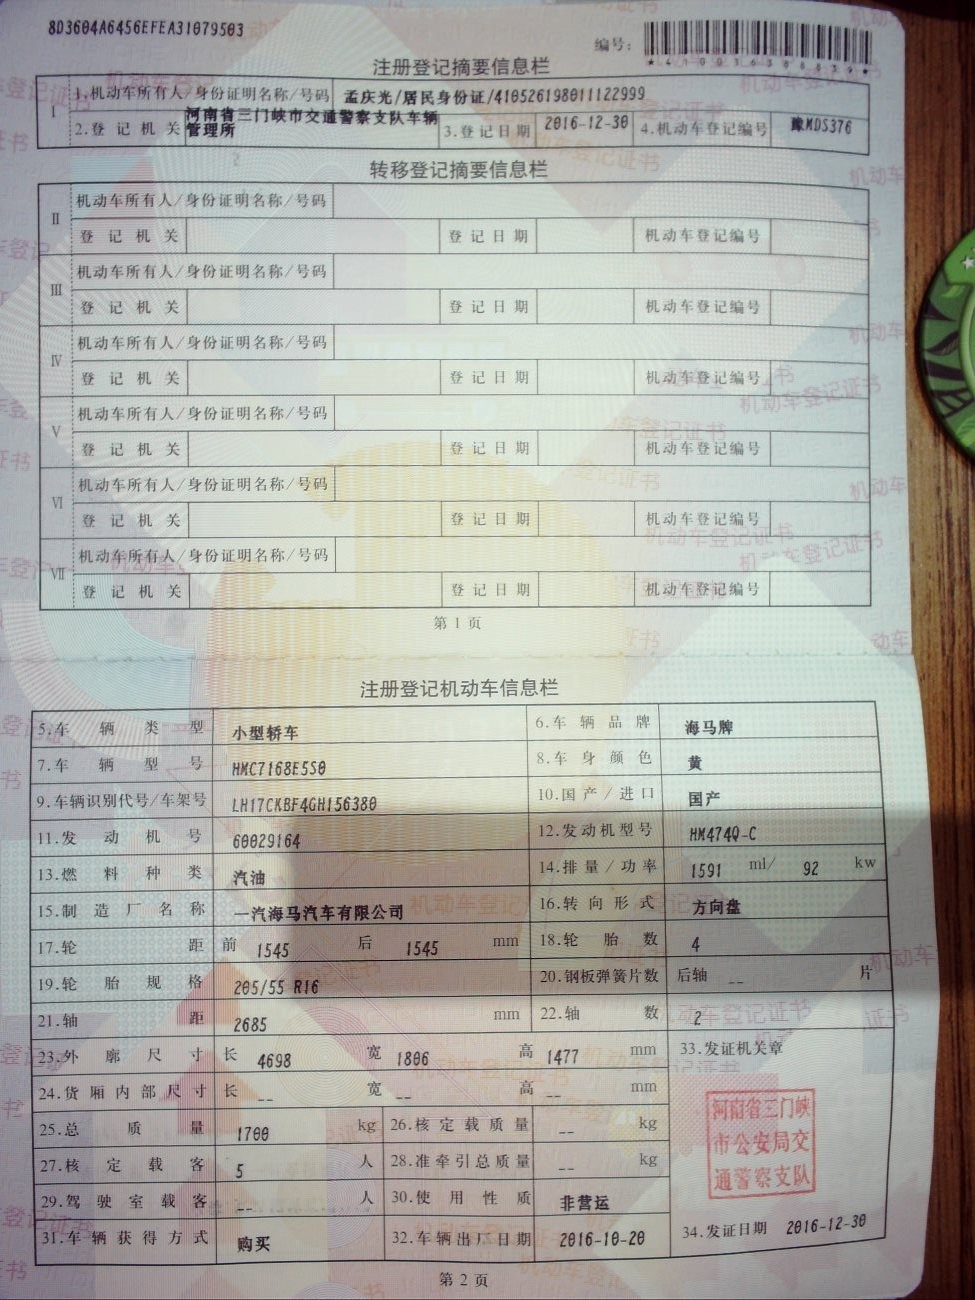 8D3604A6456EFEA31079503
编号:
注册登记摘要信息栏
I
1.机动车所有人/身份证明名称/号码 孟庆光/居民身份证/410526198011122999
2.登记机关 河南省三门峡市交通警察支队车辆管理所 3.登记日期 2016-12-30 4.机动车登记编号 豫MDS376
转移登记摘要信息栏
II
机动车所有人/身份证明名称/号码
登记机关 登记日期 机动车登记编号
III
机动车所有人/身份证明名称/号码
登记机关 登记日期 机动车登记编号
IV
机动车所有人/身份证明名称/号码
登记机关 登记日期 机动车登记编号
V
机动车所有人/身份证明名称/号码
登记机关 登记日期 机动车登记编号
VI
机动车所有人/身份证明名称/号码
登记机关 登记日期 机动车登记编号
VII
机动车所有人/身份证明名称/号码
登记机关 登记日期 机动车登记编号
第 1 页
注册登记机动车信息栏
5.车辆类型 小型轿车 6.车辆品牌 海马牌
7.车辆型号 HMC7168E5S0 8.车身颜色 黄
9.车辆识别代号/车架号 LH17CKBF4GH156380 10.国产/进口 国产
11.发动机号 60029164 12.发动机型号 HM474Q-C
13.燃料种类 汽油 14.排量/功率 1591 ml/ 92 kw
15.制造厂名称 一汽海马汽车有限公司 16.转向形式 方向盘
17.轮距 前 1545 后 1545 mm 18.轮胎数 4
19.轮胎规格 205/55 R16 20.钢板弹簧片数 后轴 -- 片
21.轴距 2685 mm 22.轴数 2
23.外廓尺寸 长 4698 宽 1806 高 1477 mm 33.发证机关章
24.货厢内部尺寸 长 -- 宽 -- 高 -- mm
25.总质量 1700 kg 26.核定载质量 -- kg
27.核定载客 5 人 28.准牵引总质量 -- kg
29.驾驶室载客 -- 人 30.使用性质 非营运
31.车辆获得方式 购买 32.车辆出厂日期 2016-10-20 34.发证日期 2016-12-30
河南省三门峡
市公安局交
通警察支队
第 2 页